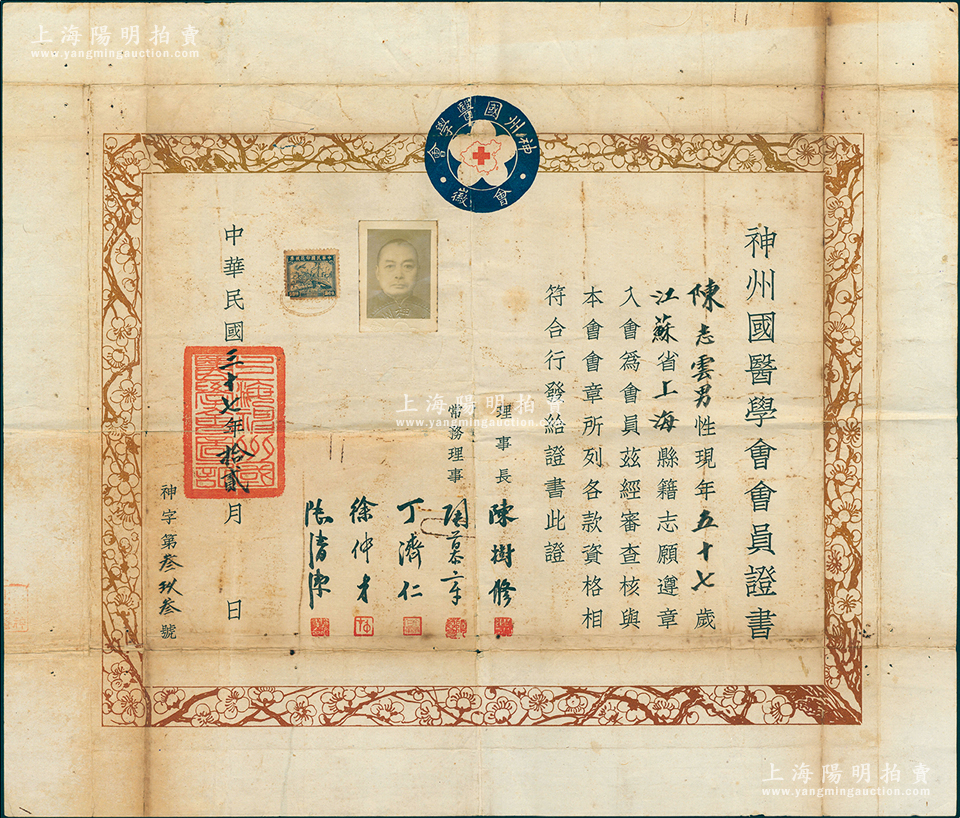 上海陽明拍賣
www.yangmingauction.com
神州國醫學會
會徽
神州國醫學會會員證書
陳志雲男性現年五十七歲
江蘇省上海縣籍志願遵章
入會爲會員茲經審查核與
本會會章所列各款資格相
符合行發給證書此證
理事長 陳樹修
常務理事
丁濟仁
徐仲才
中華民國三十七年拾貳月 日
神字第叁玖叁號
上海陽明拍賣
www.yangmingauction.com
上海陽明拍賣
www.yangmingauction.com